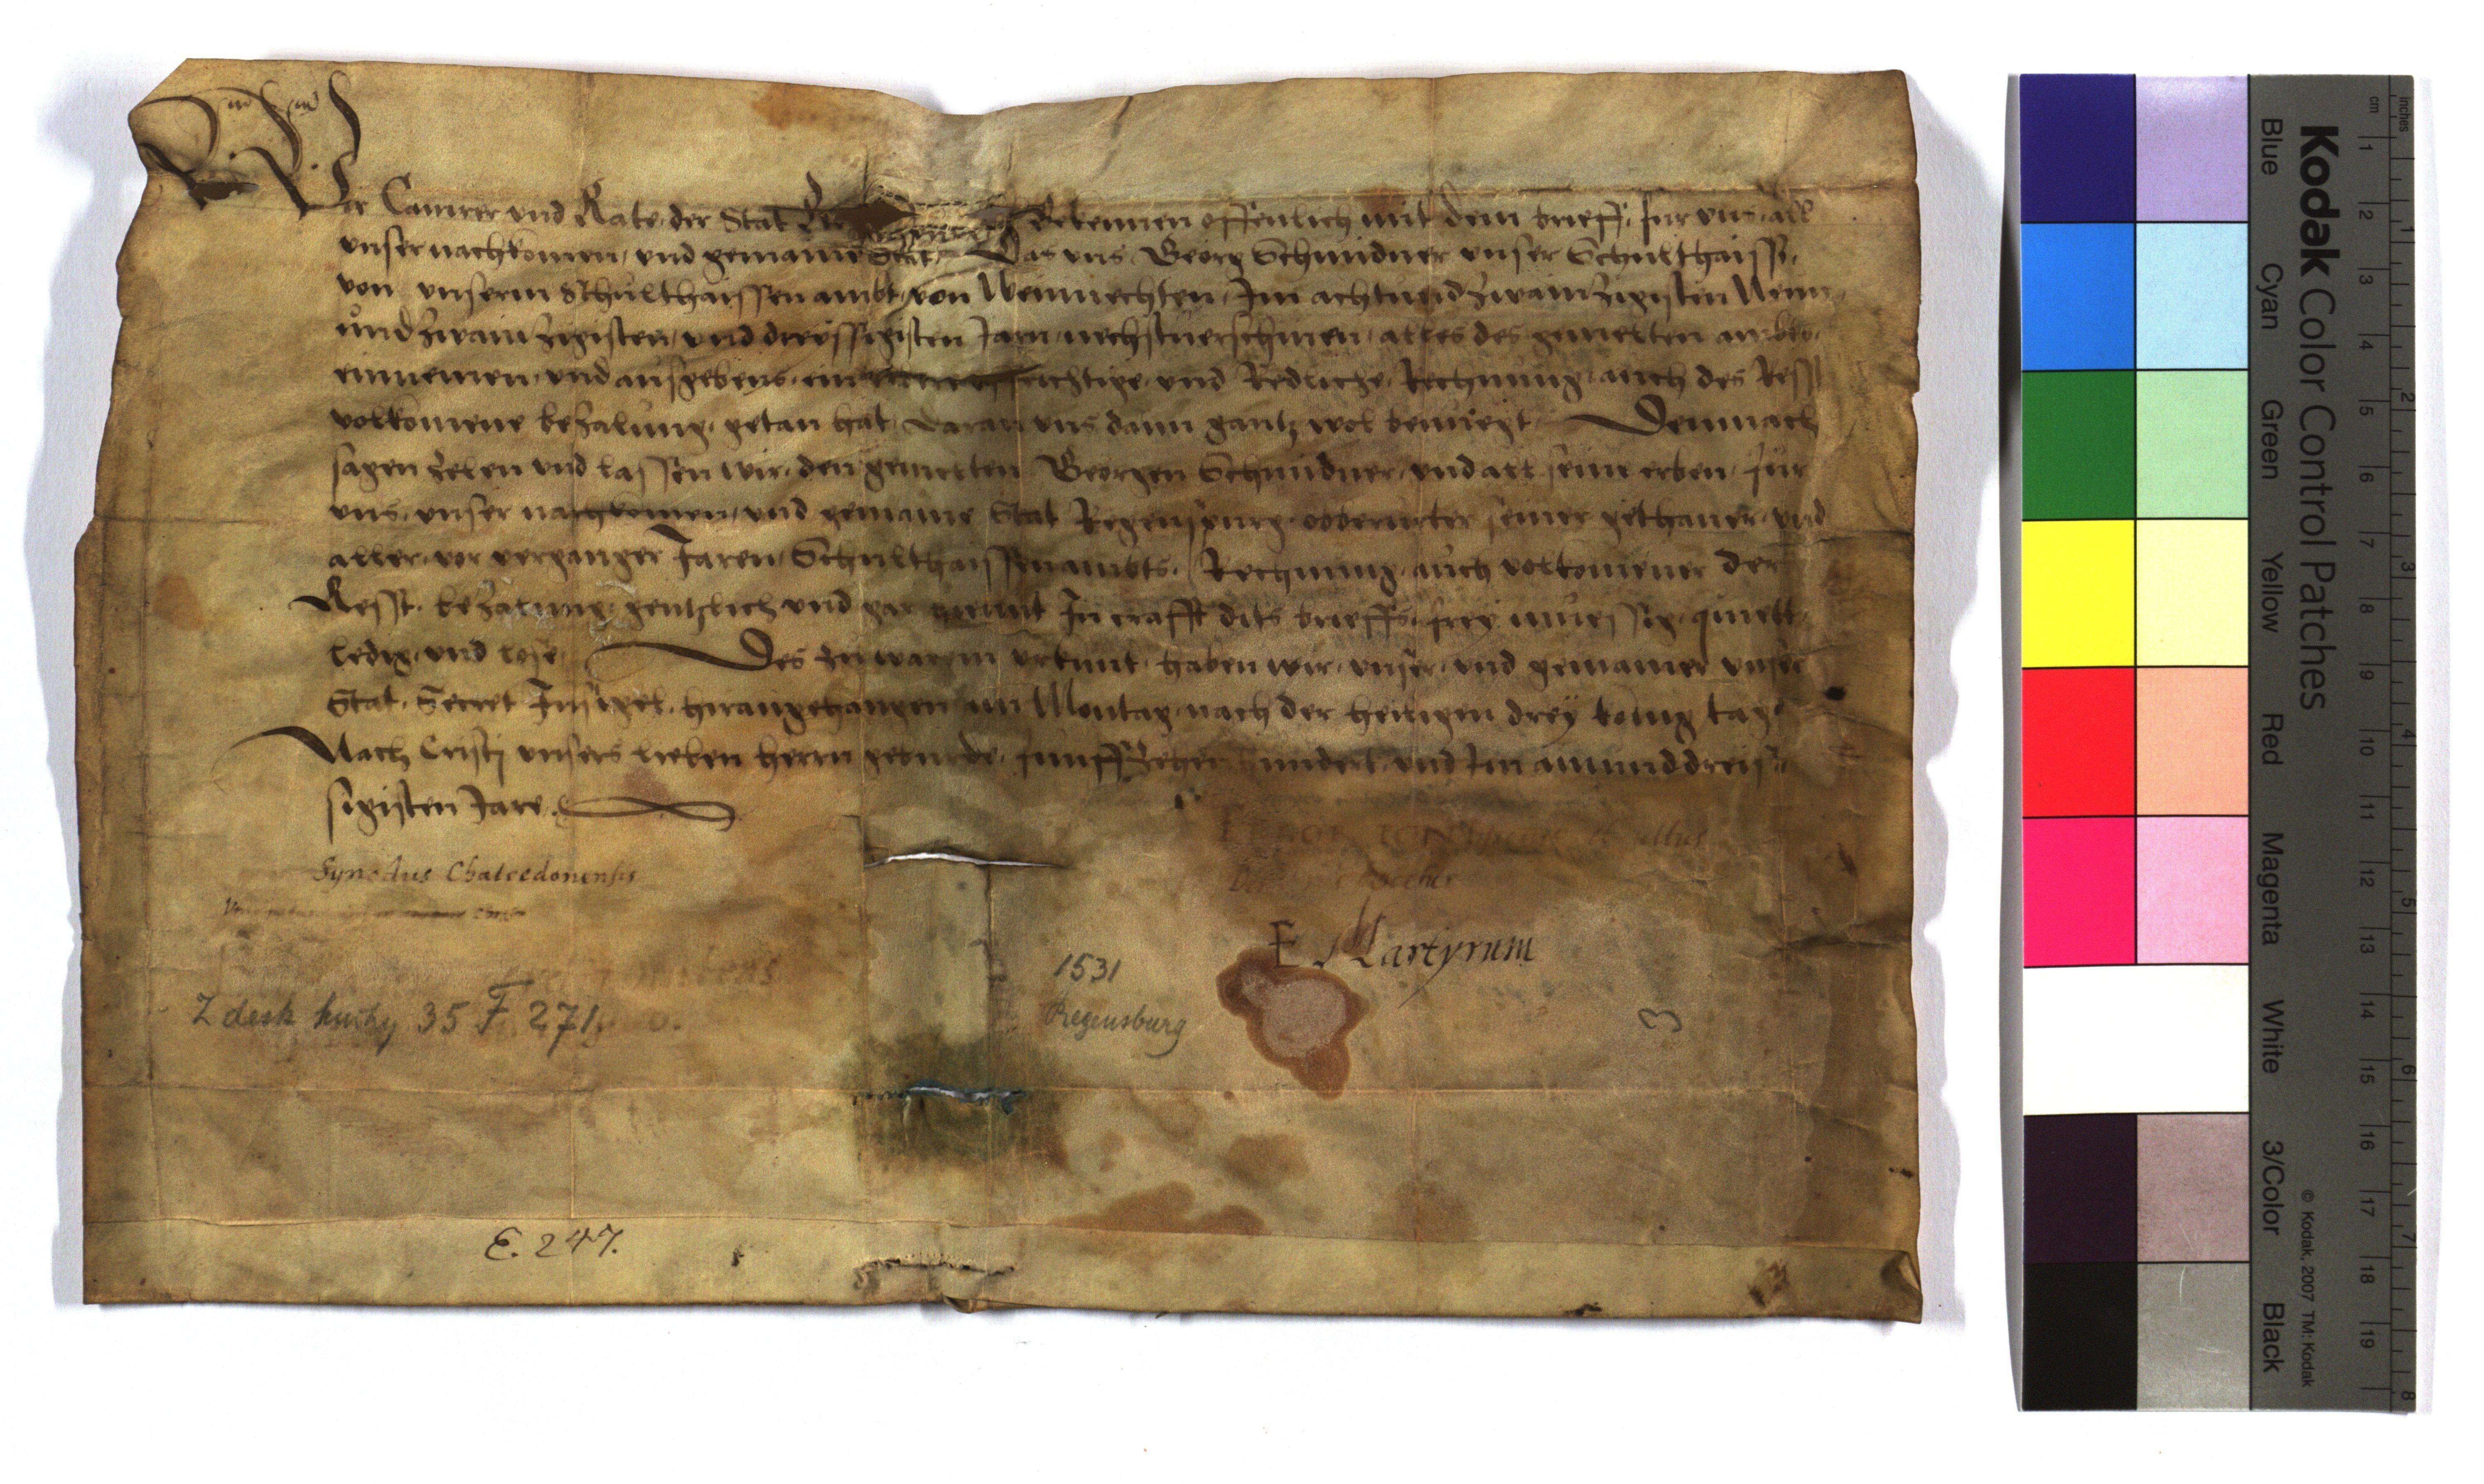 Wir Camrer und Rate der Stat Re[...]purg Bekennen offenlich mit dem brieff fur uns all
unser nachkomen und gemaine Stat Das uns Georg Schmidner unser Schulthaiss
von unserm Schulthaissenambt von Weinnechten Im achtundzwainzigisten Neun
undzwainzigisten und dreyssigisten Jarn nechstuerschinen alles des gemelten ambts
einnemen und ausgebens ein auffrichtige und Redliche Rechnung auch des Resst
volkomene bezalung getan hat daran uns dann gantz wol benuegt Demnach
sagen zelen und lassen wir den gemelten Georgen Schmidner und all seine erben fur
uns unser nachkomen und gemaine Stat Regenspurg obberurter seiner gethaner und
aller vor verganger Jaren Schulthaissenambts Rechnung auch volkomener der
Resst bezalung gentzlich und gar In crafft dits brieffs frey muessig quitt
ledig und lose Des zu warem urkunt haben wir unser und gemainer unser
Stat Secret Insigel hirangehangen am Montag nach der heiligen drey konig tag
Nach Cristj unsers lieben herrn geburde funffzehenhundert und Im ainunddreis
sigisten Jare
Synodus Chalcedonensis
E Martyrum
1531
Regensburg
Z desk knihy 35 F 271
3
E. 247.
Kodak Color Control Patches
Blue Cyan Green Yellow Red Magenta White 3/Color Black
© Kodak, 2007 TM: Kodak
inches 1 2 3 4 5 6 7 8
cm 1 2 3 4 5 6 7 8 9 10 11 12 13 14 15 16 17 18 19